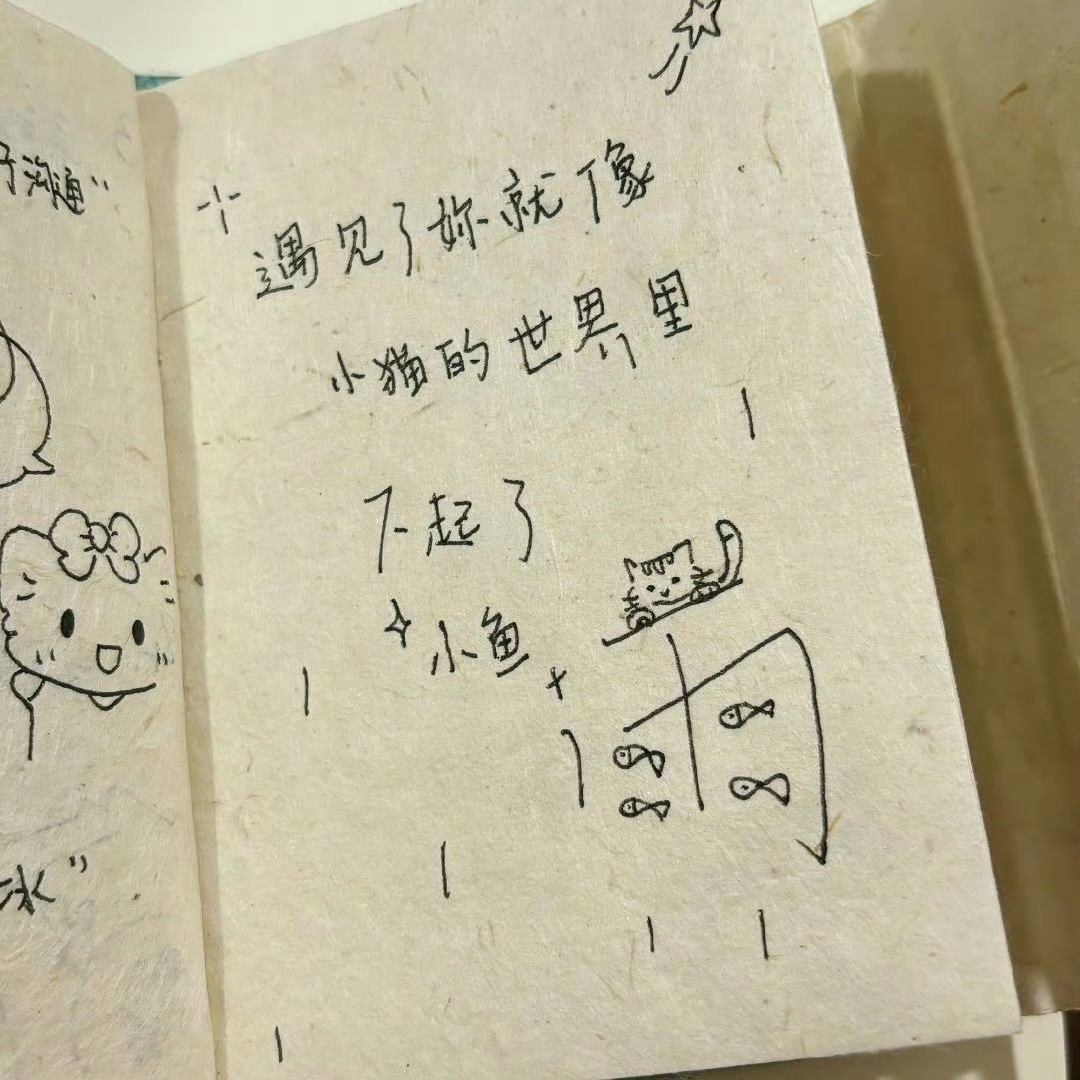 沟通”
遇见了妳就像
小猫的世界里
下起了
小鱼雨